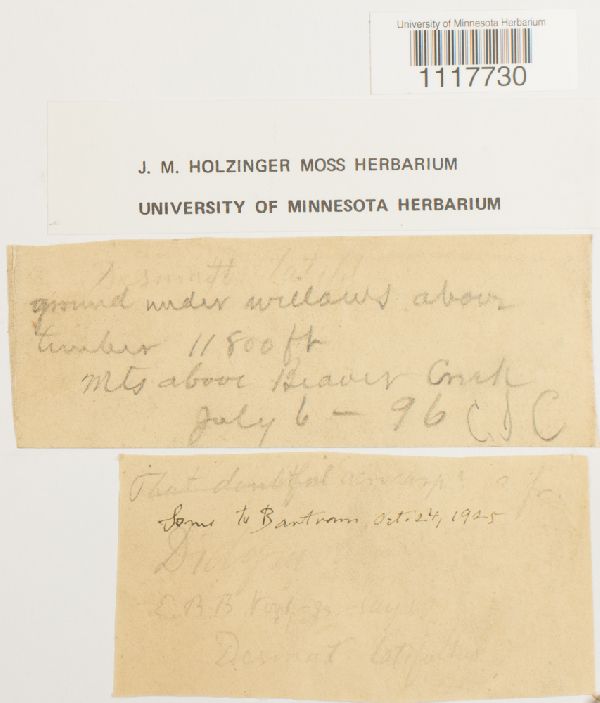 University of Minnesota Herbarium
1117730
J. M. HOLZINGER MOSS HERBARIUM
UNIVERSITY OF MINNESOTA HERBARIUM
ground under willows above
timber 11800 ft
Mts above Beaver Creek
July 6 - 96 C D C
That doubtful
Some to Bartram, Oct. 24, 1925
Desmat. latifolius